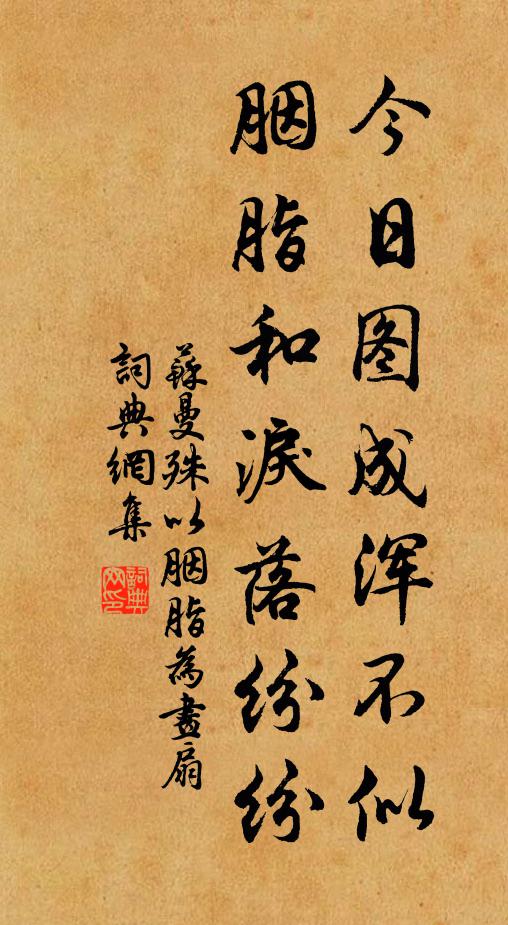 今日图成浑不似
胭脂和淚落纷纷
蘇曼殊以胭脂為畫扇
詞典網集
詞典网印